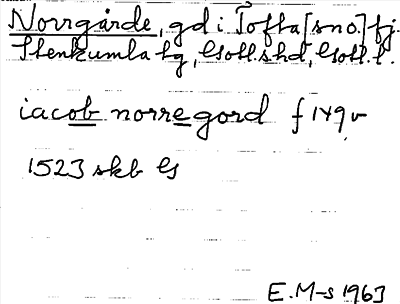 Norrgårde, gd i Tofta [sno.] fj.
Stenkumla tg, Gotl. shd, Gotl. l.
iacob norregord f 149v
1523 skb G
E.M-s 1963